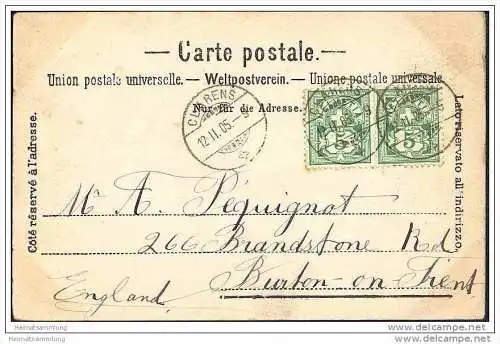 — Carte postale. —
Union postale universelle. — Weltpostverein. — Unione postale universale.
Nur für die Adresse.
CLARENS
12.II.05.-9
Côté réservé à l'adresse.
Lato riservato all'indirizzo.
5 5
M. A. Péquignot
266 Brandstone Rd
Burton-on-Trent
England
Heimatsammlung
Heimatsammlung
delcampe.net